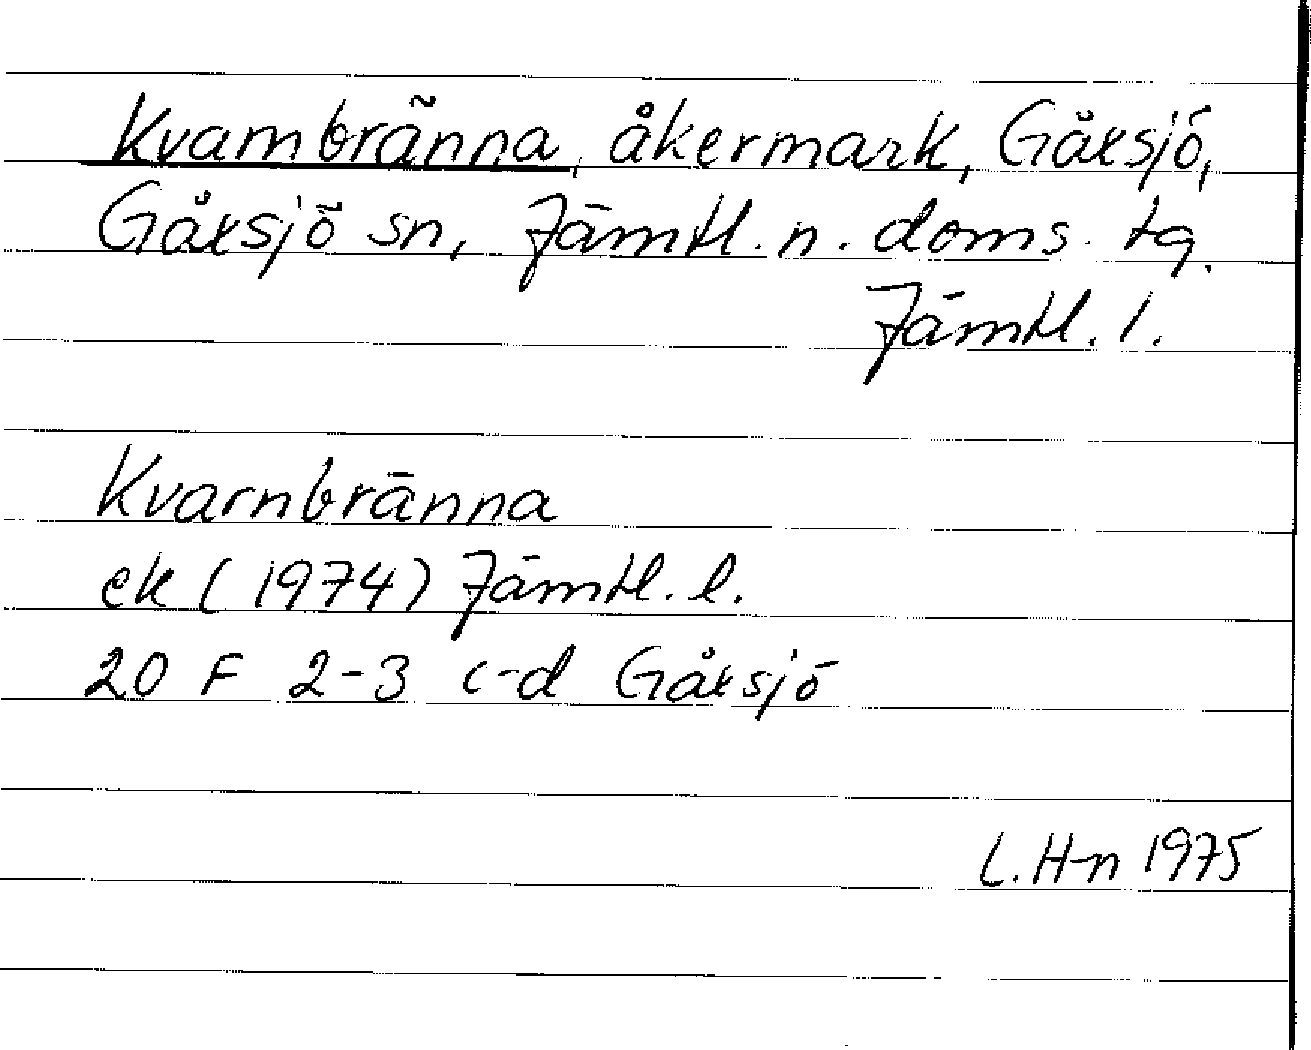 Kvarnbränna, åkermark, Gåxsjö,
Gåxsjö sn, Jämtl. n. doms. tg.
Jämtl. l.
Kvarnbränna
ek (1974) Jämtl. l.
20 F 2-3 c-d Gåxsjö
L. H-n 1975